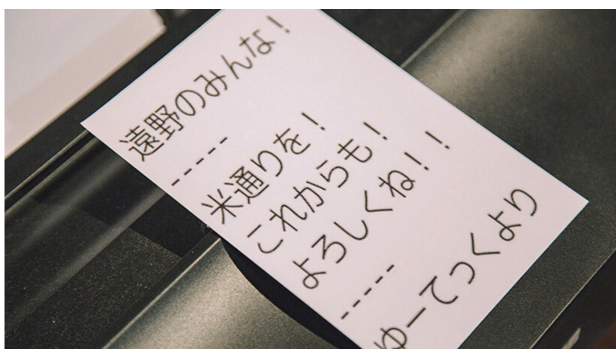 遠野のみんな！
-----
米通りを！
これからも！
よろしくね！！
-----
ゆーてっくより